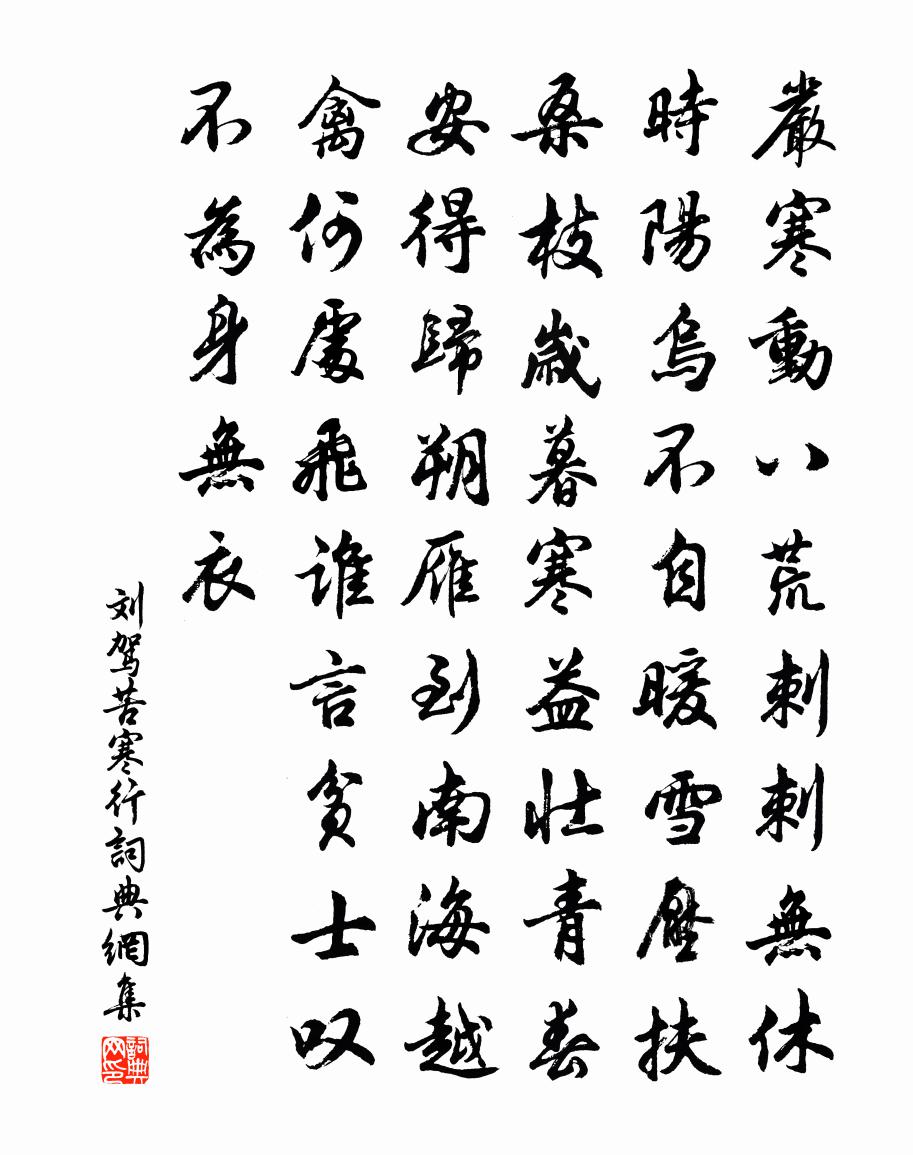 嚴寒動八荒刺刺無休
時陽烏不自暖雪壓扶
桑枝歲暮寒益壯青春
安得歸朔雁到南海越
禽何處飛誰言貧士叹
不為身無衣
刘驾苦寒行詞典網集
詞典网印